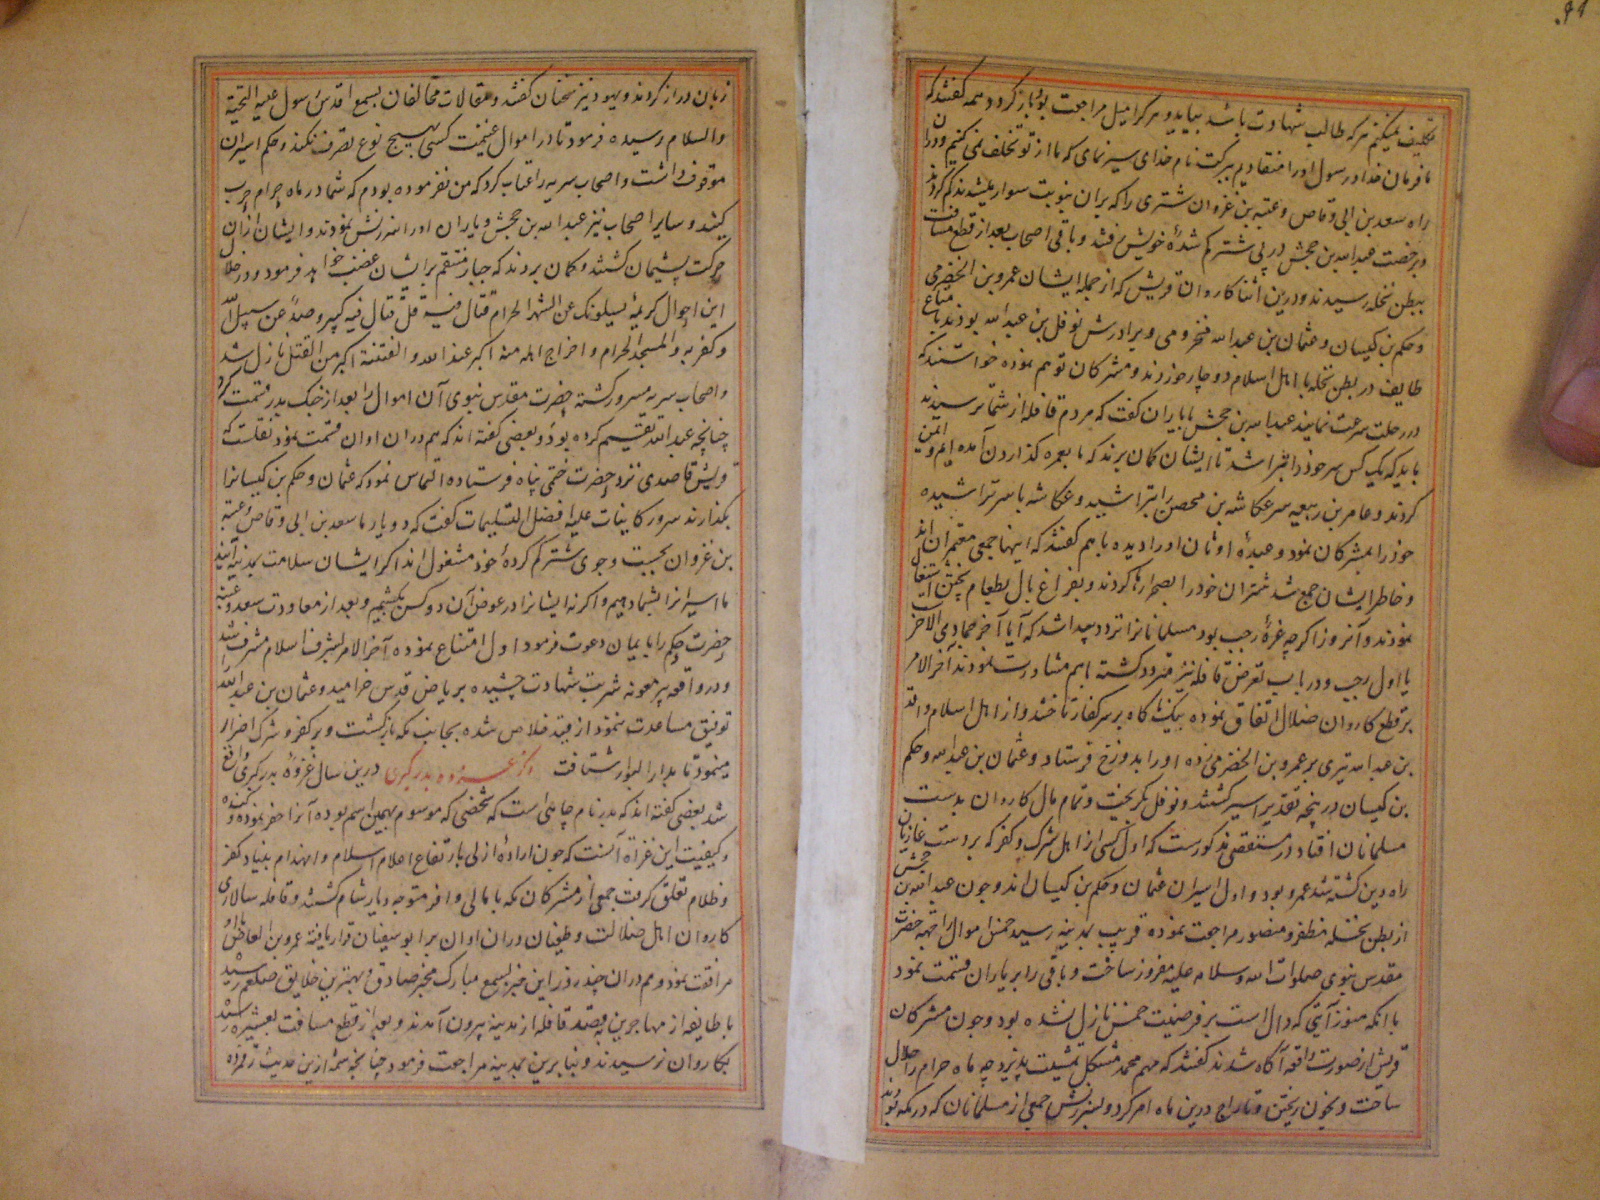 تکلیف نمیکنم هرکه طالب شهادت باشد بیاید و هرکرا میل مراجعت بود باز گردد همه گفتند که
ما فرمان خدا و رسول او را منقادیم ببرکت نام خدای سیر نمای که ما از تو تخلف نمی کنیم و دران
راه سعد بن ابی وقاص و عتبه بن غزوان شتری را که بران بنوبت سوار میشدند کم کردند
و برخصت عبد الله بن جحش در پی شتر کم شدهٔ خویش رفتند و باقی اصحاب بعد از قطع مسافت
ببطن نخله رسیدند و درین اثنا کاروان قریش که از جمله ایشان عمرو بن الحضرمی
و حکم بن کیسان و عثمان بن عبد الله مخزومی و برادرش نوفل بن عبد الله بودند با متاع
طایف در بطن نخله با اهل اسلام دوچار خوردند و مشرکان توهم نموده خواستند که
در رحلت سرعت نمایند عبد الله بن جحش با یاران گفت که مردم قافله از شما ترسیدند
باید که یک کس سر خود را بتراشد تا ایشان کمان برند که ما بعمره کذاردن آمده ایم و ایمن
کردند و عامر بن ربیعه سر عکاشه بن محصن را بتراشید و عکاشه با سر تراشیده
خود را بمشرکان نمود و عبدهٔ اوثان او را دیده با هم گفتند که اینها جمعی معتمران اند
و خاطر ایشان جمع شد شتران خود را بصحرا رها کردند و بفراغ بال بطعام پختن اشتغال
نمودند و آنروز اگرچه غرهٔ رجب بود مسلمانانرا تردد پیدا شد که آیا آخر جمادی الاخر است
یا اول رجب و در باب تعرض قافله نیز متردد کشته با هم مشاورت نمودند آخر الامر
بر قطع کاروان ضلال اتفاق نموده بیکبار کاه بر سر کفار تاختند و از اهل اسلام واقد
بن عبد الله تیری بر عمرو بن الحضرمی زده او را بدوزخ فرستاد و عثمان بن عبد الله و حکم
بن کیسان در پنجه تقدیر اسیر کشتند و نوفل بکریخت و تمام مال کاروان بدست
مسلمانان افتاد در مستقصی مذکورست که اول کسی از اهل شرک و کفر که بر دست غازیان
راه دین کشته شد عمرو بود و اول اسیران عثمان و حکم بن کیسان اند و چون عبد الله بن جحش
از بطن نخله مظفر و منصور مراجعت نموده قریب بمدینه رسید خمس اموال را جهة حضرت
مقدس نبوی صلوات الله و سلامه علیه مفروز ساخت و باقی را بر یاران قسمت نمود
با انکه هنوز آیتی که دال است بر فرضیت خمس نازل نشده بود و چون مشرکان
قریش از صورت واقعه آگاه شدند گفتند که مهم محمد مشکل تمشیت پذیرد چه ماه حرام را حلال
ساخت و بخون ریختن و تاراج درین ماه امر کرد و بسرزنش جمعی از مسلمانان که در مکه بودند
زبان دراز کردند و یهود نیز سخنان گفتند و مقالات مخالفان بسمع اقدس رسول علیه التحیة
والسلام رسیده فرمود تا در اموال غنیمت کسی بهیچ نوع تصرف نکند و حکم اسیران
موقوف داشت و اصحاب سریه را عتاب کرد که من نفرموده بودم که شما در ماه حرام حرب
کنید و سایر اصحاب نیز عبد الله بن جحش و یاران او را سرزنش نمودند و ایشان ازان
حرکت پشیمان کشتند و کمان بردند که جبار منتقم بر ایشان غضب خواهد فرمود و در خلال
این احوال کریمهٔ یسئلونک عن الشهر الحرام قتال فیه قل قتال فیه کبیر و صد عن سبیل الله
و کفر به و المسجد الحرام و اخراج اهله منه اکبر عند الله و الفتنة اکبر من القتل نازل شد
و اصحاب سریه مسرور کشته حضرت مقدس نبوی آن اموال را بعد از جنک بدر قسمت کرد
چنانچه عبد الله تقسیم کرده بود و بعضی گفته اند که هم دران اوان قسمت نمود نقلست که
قریش قاصدی نزد حضرت ختمی پناه فرستاده التماس نمود که عثمان و حکم بن کیسانرا
بکذارند سرور کاینات علیه افضل التسلیمات گفت که دو یار ما سعد بن ابی وقاص و عتبه
بن غزوان بجست و جوی شتر کم کردهٔ خود مشغول اند اکر ایشان سلامت بمدینه آیند
ما اسیرانرا بشما دهیم و اکر نه ایشانرا در عوض آن دو کس بکشیم و بعد از معاودت سعد و عتبه
حضرت حکم را بایمان دعوت فرمود اول امتناع نموده آخر الامر بشرف اسلام مشرف شد
و در واقعه بیر معونه شربت شهادت چشیده بریاض قدس خرامید و عثمان بن عبد الله را
توفیق مساعدت ننمود از قید خلاص شده بجانب مکه بازکشت و بر کفر و شرک اصرار
مینمود تا بدار البوار شتافت ذکر غزوه بدر کبری درین سال غزوهٔ بدر کبری واقع
شد بعضی گفته اند که بدر نام چاهی است که شخصی که موسوم بهمین اسم بوده آنرا حفر نموده بود
و کیفیت این غزاة آنست که چون ارادهٔ ازلی بارتفاع اعلام اسلام و انهدام بنیاد کفر
و ظلام تعلق کرفت جمعی از مشرکان مکه با مالی وافر متوجه دیار شام کشتند و قافله سالاری
کاروان اهل ضلالت و طغیان دران اوان بر ابو سفیان قرار یافته عمرو بن العاص با او
مرافقت نمود و هم دران چند روز این خبر بسمع مبارک مخبر صادق و بهترین خلایق صلعم رسید
با طایفه از مهاجرین بقصد قافله از مدینه بیرون آمدند و بعد از قطع مسافت بعشیره رسیدند
بکاروان نرسیدند و بنابرین بمدینه مراجعت فرمود چنانچه شمهٔ ازین حدیث رقمزده